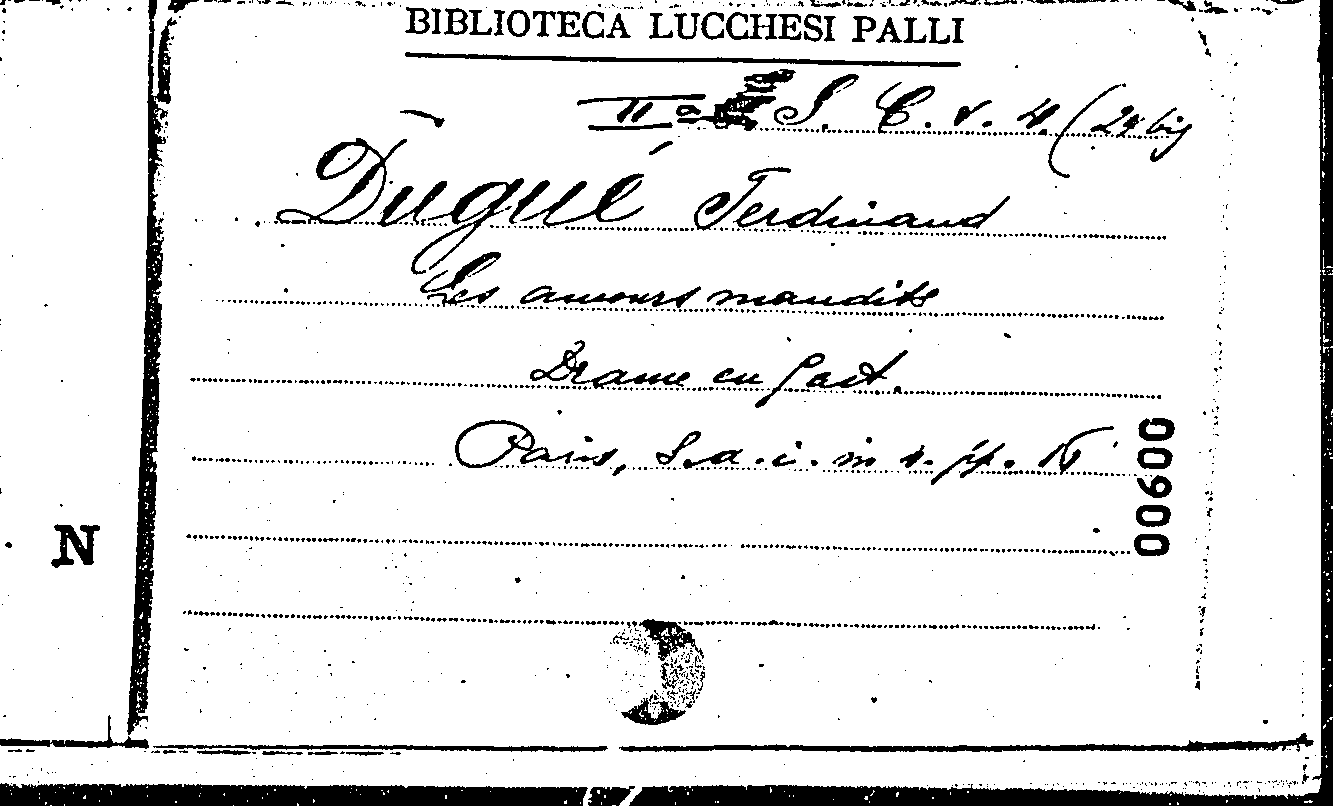 BIBLIOTECA LUCCHESI PALLI
IIa S. C. v. 4. (24 bis
Dugué Ferdinand
Les amours maudits
Drame en 5 act.
Paris, S. a. i. in 4. pp. 16
00600
N